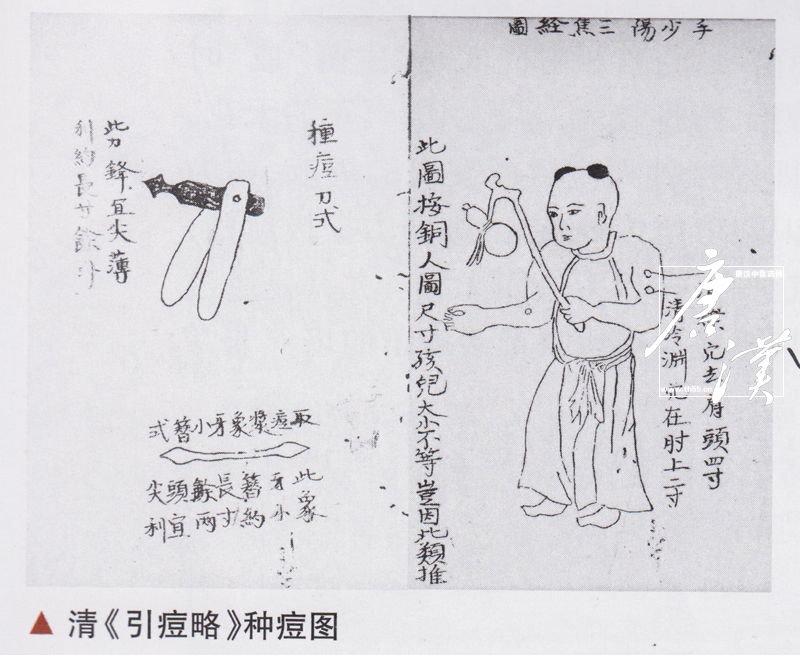 手少陽三焦經圖
穴去肩頭四寸
清冷淵穴在肘上二寸
此圖按銅人圖尺寸孩兒大小不等豈因此類推
種痘刀式
此刀鋒宜尖薄
利約長寸餘
取痘漿象牙小簪式
此象
牙小
簪約
長寸
餘兩
頭宜
尖利
▲ 清《引痘略》种痘图